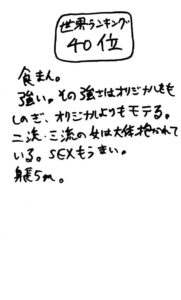 世界ランキング
40位
食まん。
強い。その強さはオリジナルをも
しのぎ、オリジナルよりもモテる。
二流・三流の女は大体抱かれて
いる。SEXもうまい。
身長5m。